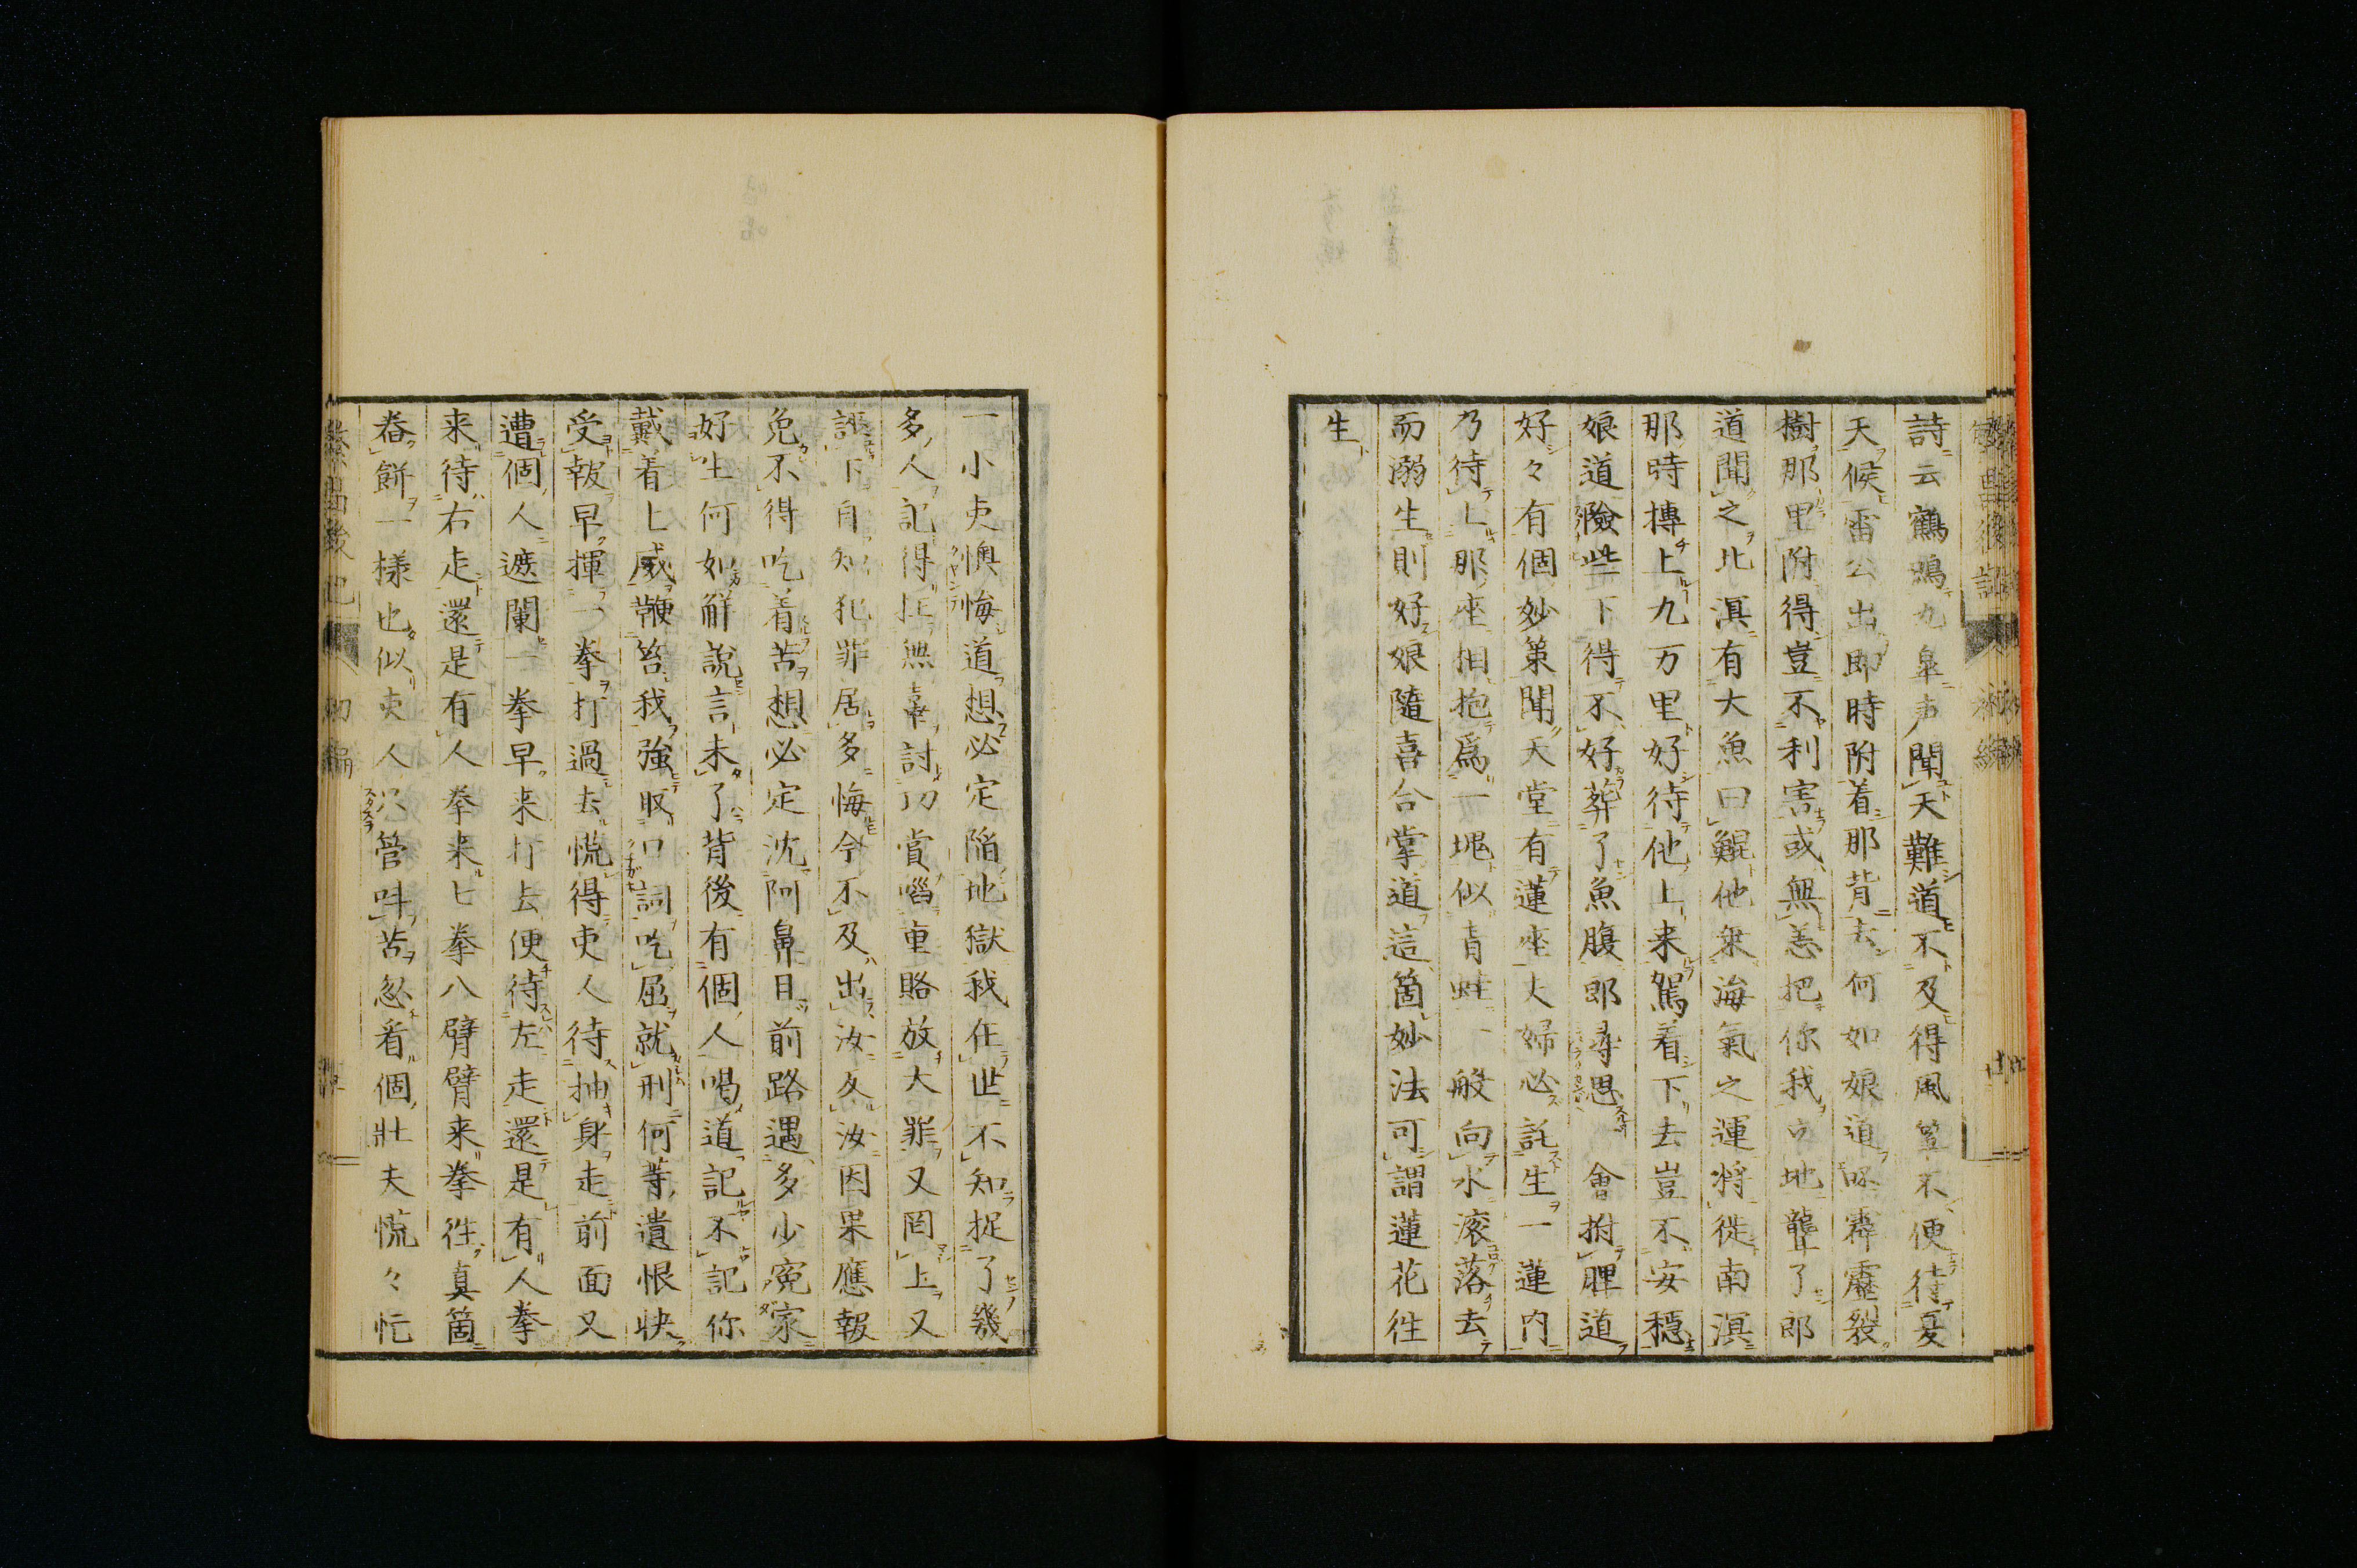 詩云鶴鳴九皐声聞天難道不及得風箏不便待夏
天候雷公出即時附着那背去何如娘道霹靂裂
樹那里附得豈不利害或無恙把你我的地聾了郎
道聞之北溟有大魚曰鯤他乗海氣之運将徙南溟
那時摶上九万里好待他上来駕着下去豈不安穏
娘道險些下得不好葬了魚腹郎尋思一會拊髀道
好々有個妙策聞天堂有蓮座夫婦必託生一蓮内
乃待上那座相抱爲一塊似青蛙一般向水滚落去
而溺生則好娘隨喜合掌道這箇妙法可謂蓮花徃
生
一小吏懊悔道想必定陥地獄我在世不知捉了幾
多人記得枉無辜討功賞啗重賂放大罪又罔上又
誣下自知犯罪居多悔今不及出汝久汝因果應報
免不得吃着苦想必定沈阿鼻日前路遇多少寃家
好生何如觧說言未了背後有個人喝道記不記你
戴着上威鞭笞我強取口詞吃屈就刑何等遺恨快
受報早揮一拳打過去慌得吏人待抽身走前面又
遭個人遮闌一拳早来打去便待左走還是有人拳
来待右走還是有人拳来七拳八臂臂来拳徃真箇
春餅一様也似吏人只管呌苦忽看個壮夫慌々忙
繁昌後記
初編